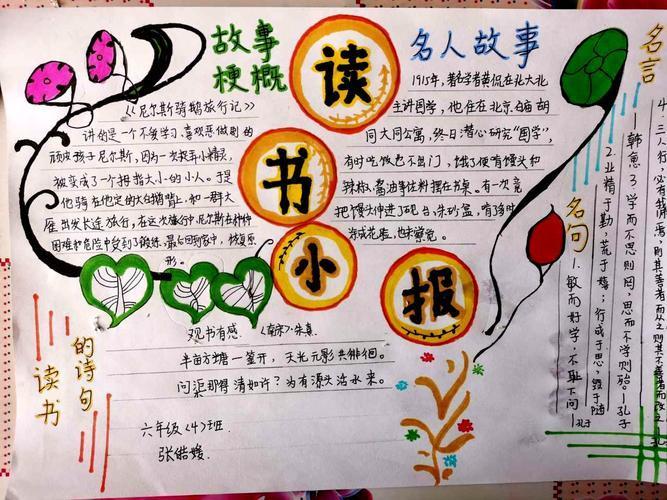 读书小报
故事
梗概
《尼尔斯骑鹅旅行记》
讲的是一个不爱学习、喜欢恶做剧的
顽皮孩子尼尔斯，因为一次捉弄小精灵，
被变成了一个拇指大小的小人。于是
他骑在他家的大白鹅背上，和一群大
雁出发长途旅行，在这次旅行中，尼尔斯在种种
困难和危险中受到了锻练，最后回到家中，恢复原
形。
名人故事
1915年，著名学者黄侃在北大北
主讲国学，他住在北京白庙胡
同大同公寓，终日潜心研究"国学"，
有时吃饭也不出门，饿了便有馒头和
辣椒、酱油等佐料摆在书桌。有一次竟
把馒头伸进了砚台、朱砂盆，有了多时
涂成花脸，也未察觉。
观书有感 《南宋》·朱熹
半亩方塘一鉴开，天光云影共徘徊。
问渠那得清如许？为有源头活水来。
读书
的诗句
六年级〈4〉班
张皓媛
名言
名句
1.敏而好学，不耻下问—孔子
2.业精于勤，荒于嬉；行成于思，毁于随
—韩愈 3.学而不思则罔，思而不学则殆。—孔子
4.三人行，必有我师焉